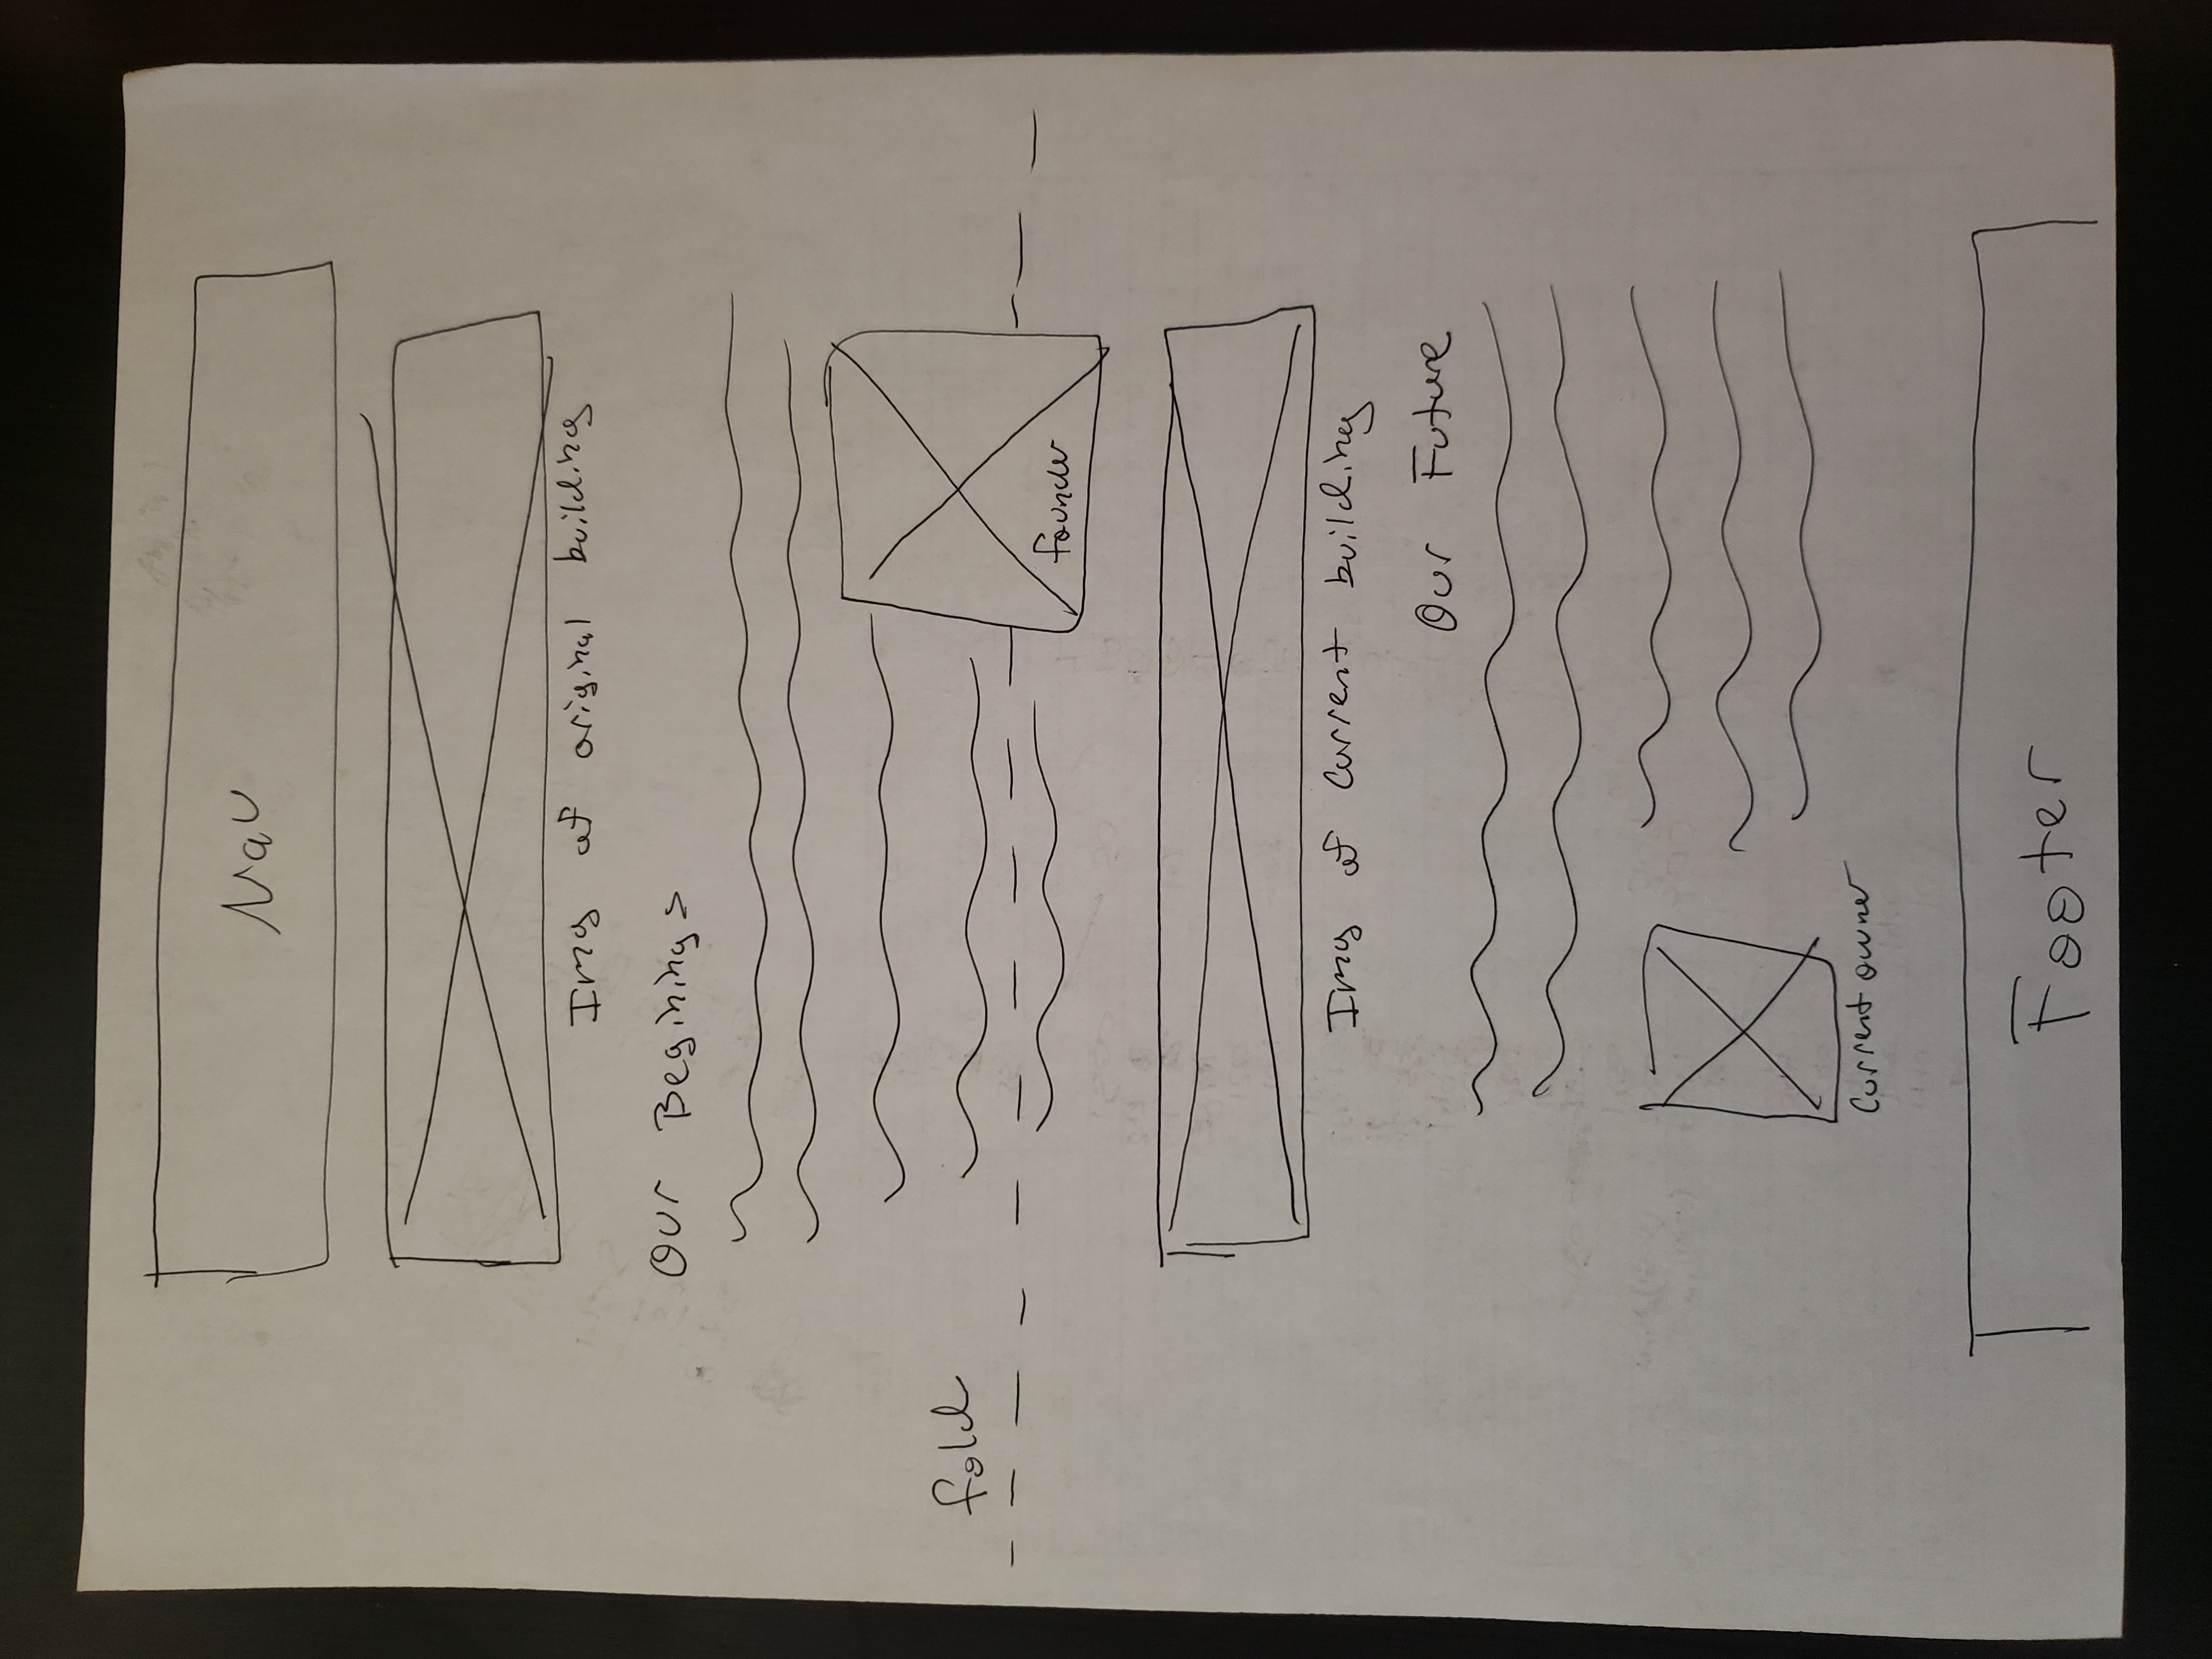 Nav
Img of original building
Our Begining>
fold
founder
Img of Current building
Our Future
Current owner
Footer